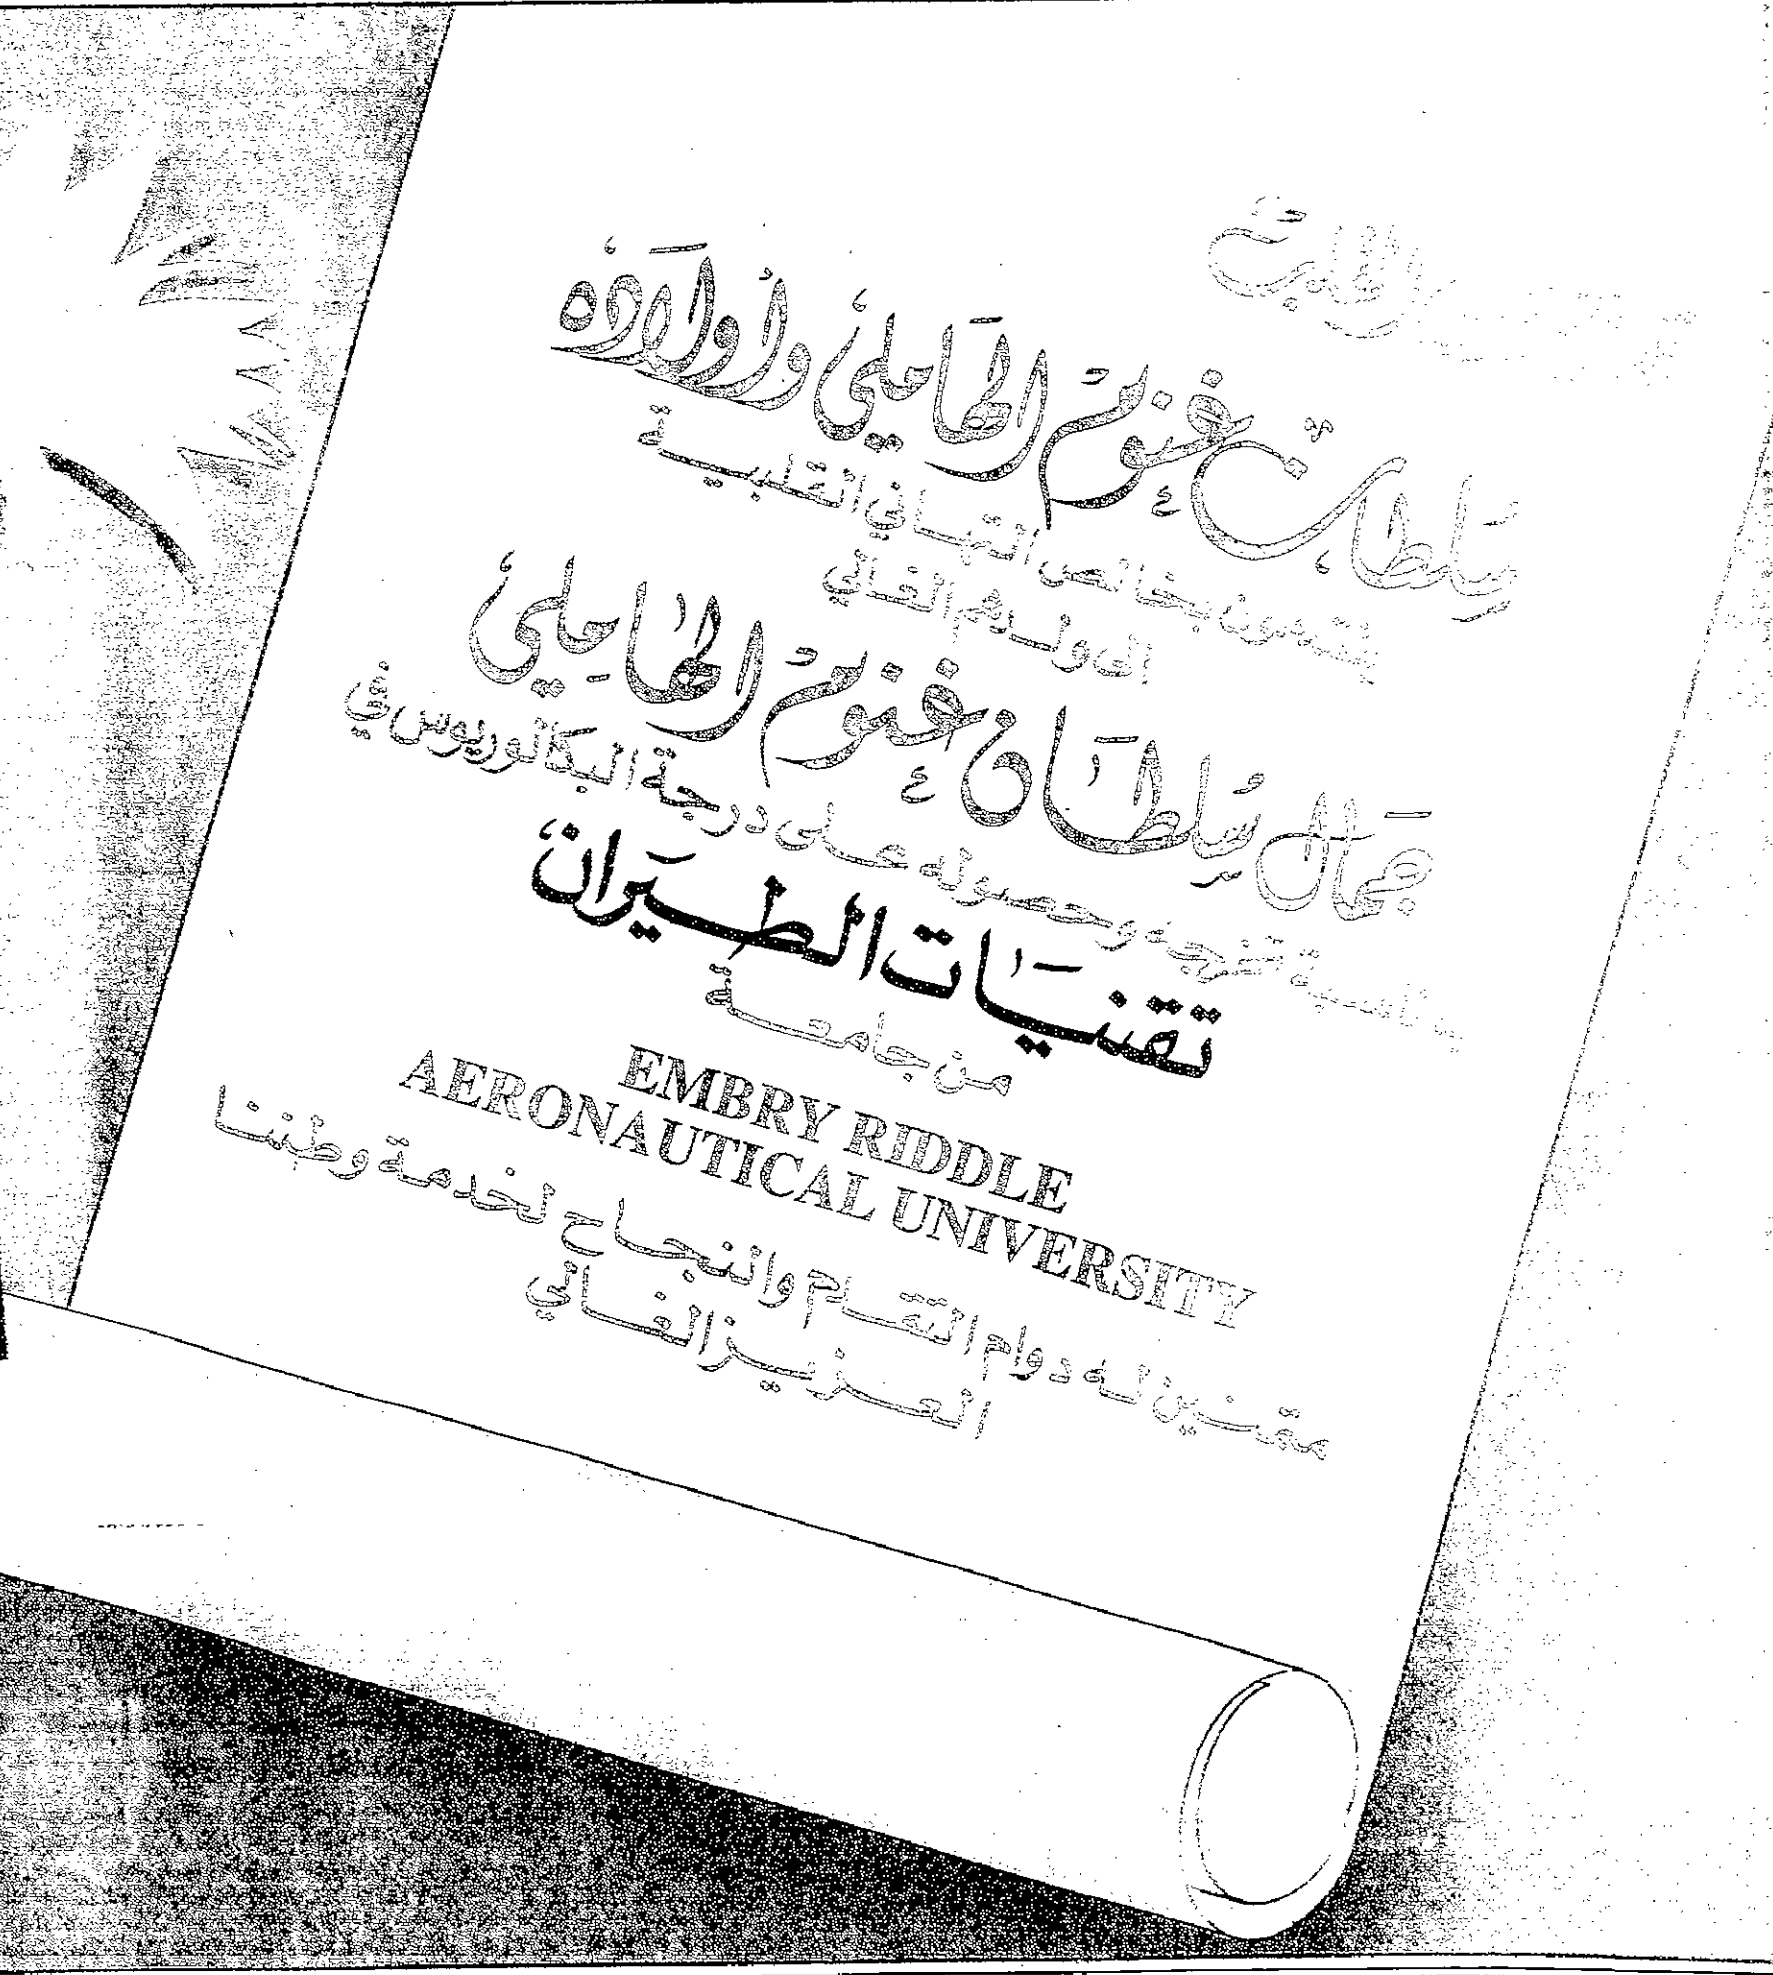 سلطان غنوم الهاملي وأولاده
يتقدمون بخالص التهاني القلبية
الى ولدهم الغالي
جمال سلطان غنوم الهاملي
بمناسبة تخرجه وحصوله على درجة البكالوريوس في
تقنيات الطيران
من جامعة
EMBRY RIDDLE
AERONAUTICAL UNIVERSITY
متمنين له دوام التقدم والنجاح لخدمة وطننا
العزيز الغالي